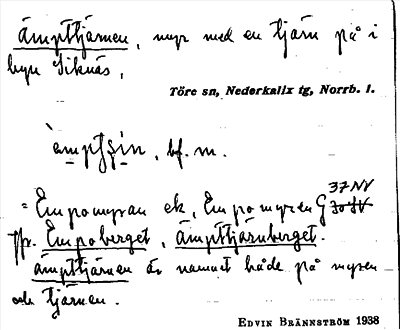 ämpttjärnen, myr med en tjärn på i
byn Siknäs,
Töre sn, Nederkalix tg, Norrb. l.
`ämptʃin, bf. m.
= Empomyran ek, Empomyren G 37 NV
Jfr. Empoberget, ämpttjärnberget.
ämpttjärnen är namnet både på myren
och tjärnen.
EDVIN BRÄNNSTRÖM 1938